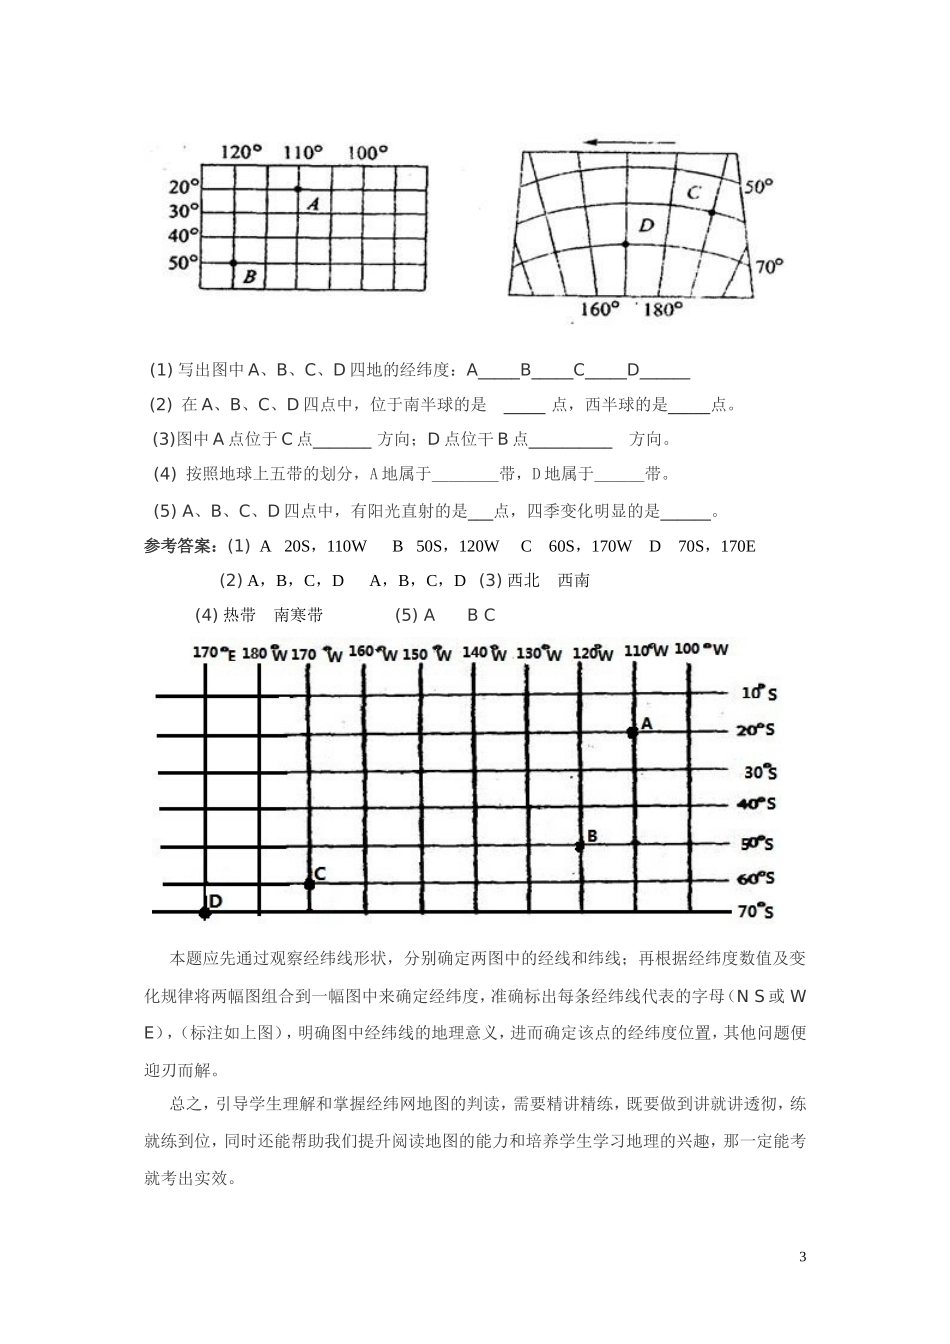 120° 110° 100°
20°
30°
40°
50°
A
B
50°
C
D
70°
160° 180°
(1) 写出图中 A、B、C、D 四地的经纬度：A_____B_____C_____D______
(2) 在 A、B、C、D 四点中，位于南半球的是 _____ 点，西半球的是_____点。
(3)图中 A 点位于 C 点_______ 方向；D 点位干 B 点__________ 方向。
(4) 按照地球上五带的划分，A 地属于________带，D 地属于______带。
(5) A、B、C、D 四点中，有阳光直射的是___点，四季变化明显的是______。
参考答案：(1) A 20S，110W B 50S，120W C 60S，170W D 70S，170E
(2) A，B，C，D A，B，C，D (3) 西北 西南
(4) 热带 南寒带 (5) A B C
170°E 180°W 170°W 160°W 150°W 140°W 130°W 120°W 110°W 100°W
10°S
A
20°S
30°S
40°S
B
50°S
C
60°S
D
70°S
本题应先通过观察经纬线形状，分别确定两图中的经线和纬线；再根据经纬度数值及变
化规律将两幅图组合到一幅图中来确定经纬度，准确标出每条经纬线代表的字母（N S 或 W
E），（标注如上图），明确图中经纬线的地理意义，进而确定该点的经纬度位置，其他问题便
迎刃而解。
总之，引导学生理解和掌握经纬网地图的判读，需要精讲精练，既要做到讲就讲透彻，练
就练到位，同时还能帮助我们提升阅读地图的能力和培养学生学习地理的兴趣，那一定能考
就考出实效。
3